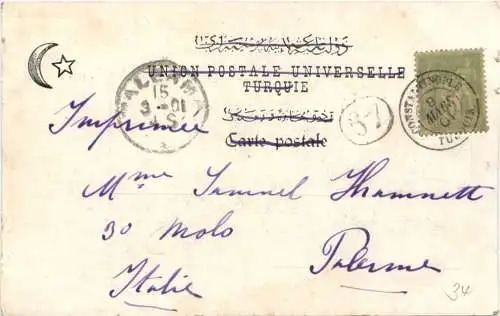 UNION POSTALE UNIVERSELLE
TURQUIE
Carte postale
PALERMO
15
3-01
4 S
37
CONSTANTINOPLE
9
MARS
01
Imprimée
Mme Samuel
30 Molo
Palerme
Italie
34